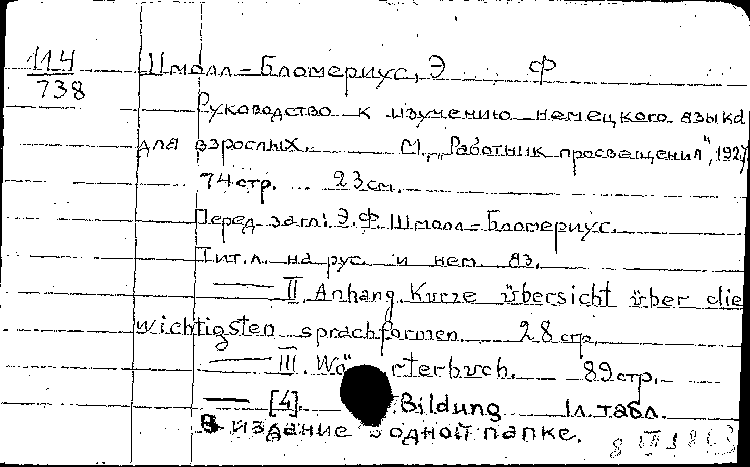 114
738
Шмолл-Бломериус, Э Ф
Руководство к изучению немецкого языка
для взрослых. М., „Работник просвещения", 1927
74 стр. 23 см.
Перед загл: Э.Ф. Шмолл-Бломериус.
Тит. л. на рус. и нем. яз.
— II. Anhang. Kurze übersicht über die
wichtigsten sprachformen. 28 стр.
— III. Wö rterbuch. 89 стр.
— [4]. Bildung 1 л. табл.
В издание в одной папке.